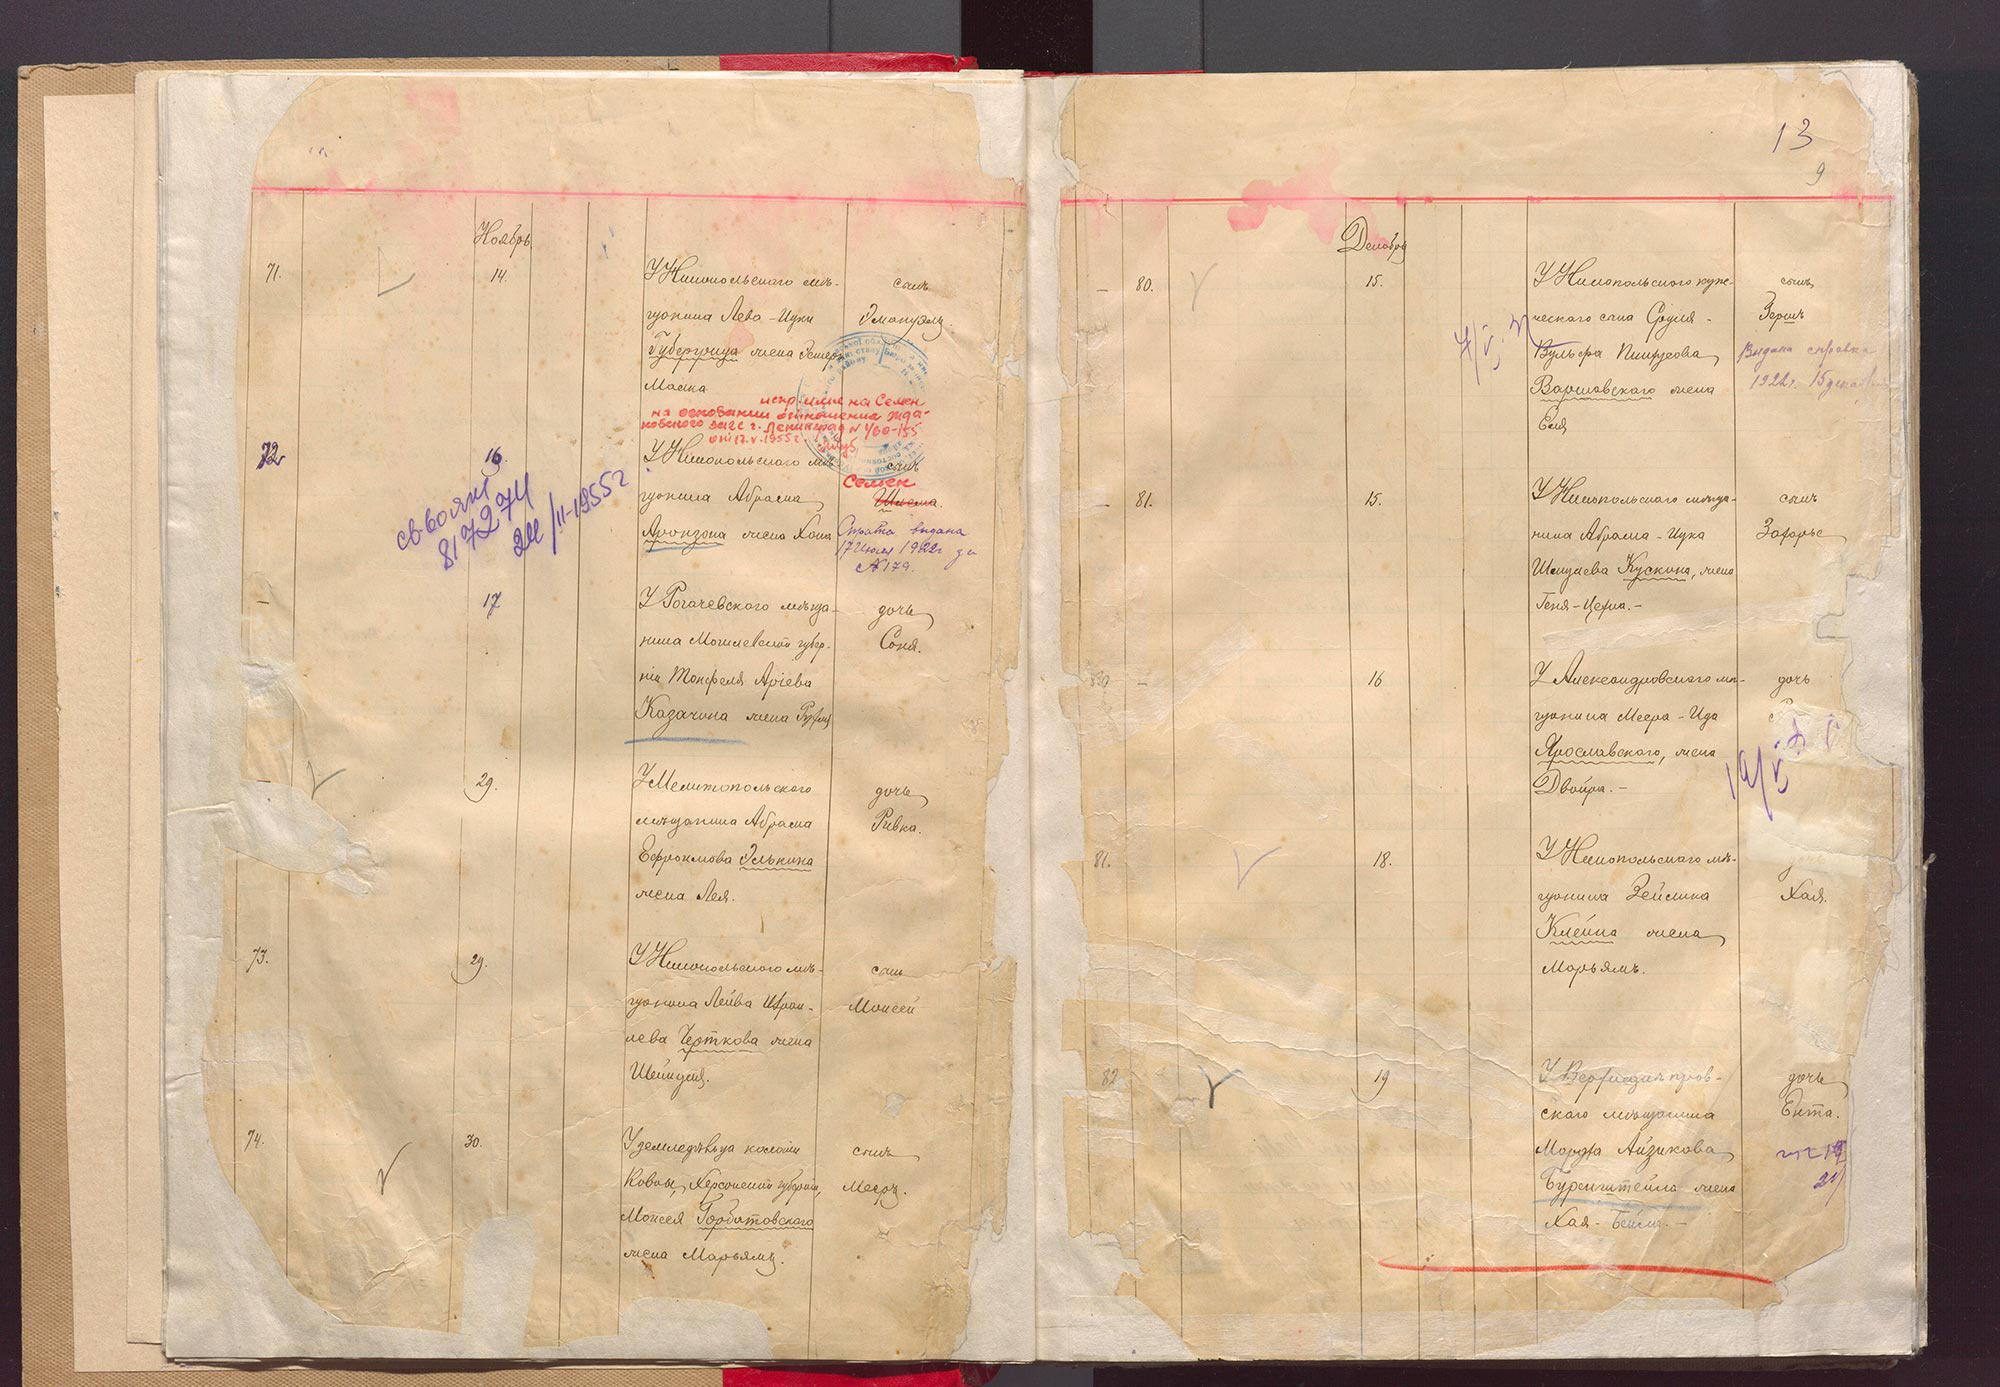 Ноябрь
71.
14.
У Никопольскаго мѣ-
щанина Лева-Ицки
Губергрица жена Эстеръ
Малка
сынъ
Эмануилъ.
испр. имя на Семен
на основании отношения Жда-
новского загс г. Ленинград N 1/60-155
от 17.V.1955 г.
72
16
У Никопольскаго мѣ
щанина Абрама
Аронзона жена Хана
сынъ
Семен
Шлема.
видана
17 1922г за
N 179.
св-во
817274
24/II-1955г
17
У Рогачевского мѣща-
нина Могилевской губер-
нiи Аріева
Казачина жена
дочь
Соня.
29.
У Мелитопольского
мѣщанина Абрама
Ефроимова Элькина
жена Лея.
дочь
Ривка.
73.
29.
У Никопольскаго мѣ-
щанина Лейва Изра-
лева Черткова жена
сынъ
Моисей
74.
30.
У земледѣльца колонiи
Херсонской губернiи,
Моисея Горбатовского
жена Марьямъ.
сынъ
Мееръ.
13
9
Декабрь
80.
15.
У Никопольского купе-
ческого сына
Вульфа
Варшавского жена
сынъ
Видана справка
1922г. 15 декабря
81.
15.
У Никопольскаго мѣща-
нина Абрама-Ицка
Кускина, жена
Геня-Церна.-
сынъ
16
У Александровскаго мѣ-
щанина Меера-Ида
Ярославского, жена
Двойра.-
дочь
19/V
81.
18.
У Никопольскаго мѣ-
щанина Зейлика
Клейна жена
Марьямъ.
Хая.
82
19
У Верхнеднѣпров-
ского мѣщанина
Айзикова
Буренштейна жена
Хая-Бейла.-
дочь
Ента.